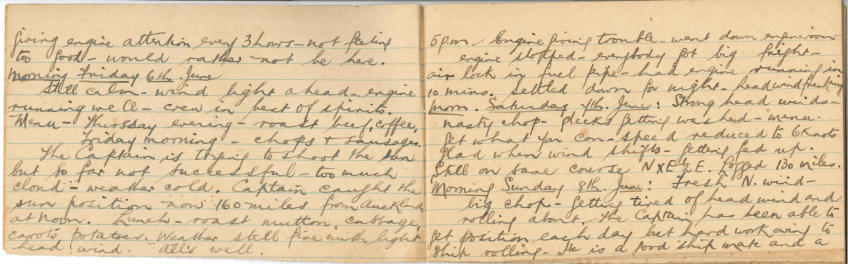 giving engine attention every 3 hours - not feeling
too good - would rather not be here.
Morning Friday 6th. June
Still calm - wind light ahead - engine
running well - crew in best of spirits.
Menu - Thursday evening - roast beef, coffee,
Friday morning - chops & sausages.
The Captain is trying to shoot the sun
but so far not successful - too much
cloud - weather cold. Captain caught the
sun position now 160 miles from Auckland
at noon. Lunch - roast mutton, cabbage,
carrots potatoes. Weather still fine with light
head wind. All's well.
5 p.m. Engine giving trouble - went down engineroom
engine stopped - everybody got big fright -
air lock in fuel pipe - had engine running in
10 mins. settled down for night - headwind freshening
Morn. Saturday 7th. June: Strong head winds -
nasty chop - decks getting washed - menu.
get what you can. speed reduced to 6 knots
glad when wind shifts - getting fed up.
Still on same course N X E ½ E. logged 130 miles.
Morning Sunday 8th. June: Fresh N. wind -
big chop - getting tired of head wind and
rolling about. The Captain has been able to
get position each day but hard work owing to
ship rolling - He is a good ship mate and a